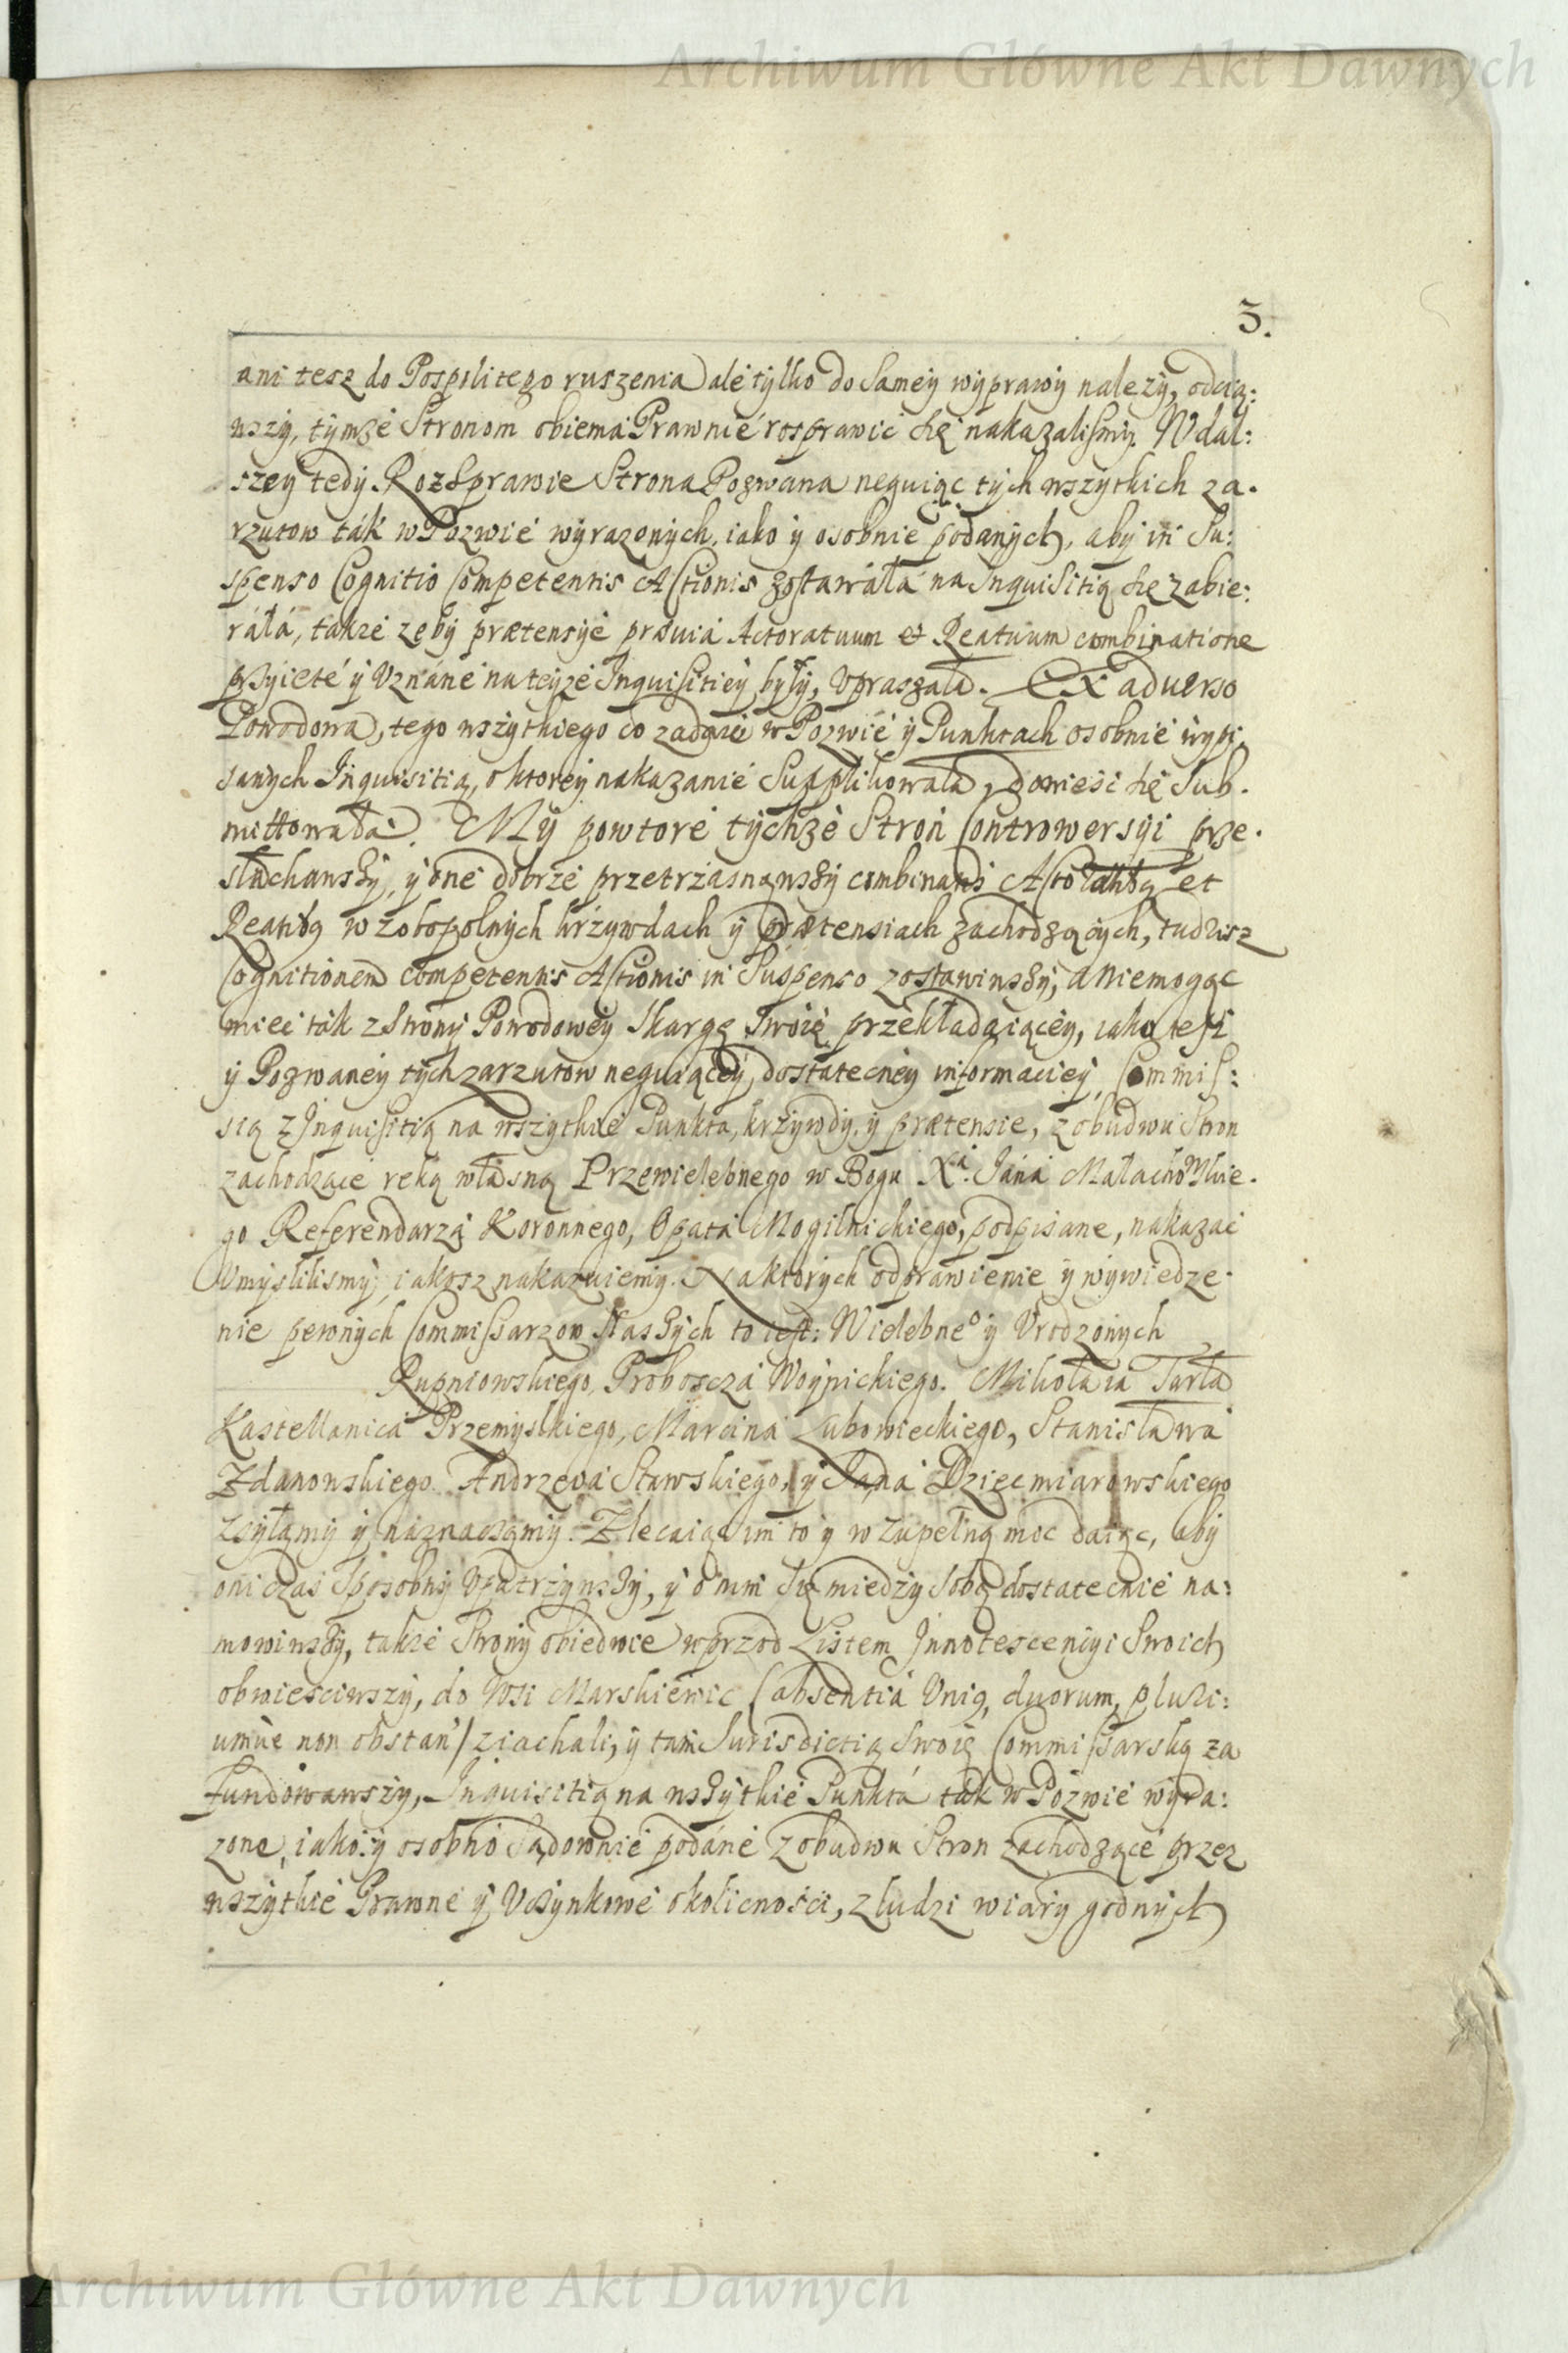 Archiwum Główne Akt Dawnych
3.
ani tesz do Pospolitego ruszenia ale tylko do Samey wyprawy należy, odcią:
wszy, tymże Stronom obiema Prawnie rosprawić się nakazalismy. W dal:
szey tedy RozSprawie Strona Pozwana neguiąc tych wszytkich za.
rzutow ták w Pozwie wyrazonych, iako y osobnie podanych, aby in Su:
spenso Cognitio Competentis Actionis zostawáłá na Inquisitią się zabie:
ráłá, także zeby prætensye Actoratuum et Reatuum combinatione
przyięte y Vznáne na teyże Inquisitiey były, Vpraszała. Ex aduerso
Powodowa, tego wszytkiego co zadaie w Pozwie y Punktach osobnie wypi,
sanych Inquisitią, o ktorey nakazanie Supplikowała, dowieść się Sub.
mittowała. My powtore tychże Stron Controwersyi prze.
słuchawszy, y one dobrze przetrząsnąwszy combinando Et
w zobopolnych krzywdach y prætensiach zachodzących, tudzisz
Cognitionem competentis Actionis in Suspenso zostawiwszy, a niemogąc
mieć ták z Strony Powodowey Skargę Swoię przekładaiącey, iako tesz
y Pozwaney tych zarzutow neguiącey, dostatecney informaciey, Commis:
sią z Inquisitią na wszytkie Punkta, krzywdy, y prætensie, z obudwu Stron
zachodzące ręką własną Przewielebnego w Bogu Xa. Jana Małachowskie.
go Referendarzá Koronnego, Opatá Mogilnickiego, podpisane, nakazać
Vmyslilismy, iakosz nakazuiemy. Na ktorych odprawienie y wywiedze.
nie pewnych Commissarzow Naszych to iest: Wielebneo y Vrodzonych
Rupniowskiego, Proboszczá Woynickiego. Mikołaia Tarła
Kastellanica Przemyskiego, Marcina Lubowieckiego, Stanisława
Zdanowskiego. Andrzeia Stawskiego, y Jana Dziećmiarowskiego
zsyłamy y náznaczamy. Zlecaiąc im to y w zupełną moc daiąc, aby
oni czas Sposobny Vpatrzywszy, y o nim się miedzy Sobą dostatecnie na:
mowiwszy, także Strony obiedwie wprzod Listem Innotescencyi Swoich
obwiesciwszy, do Wsi Marskiewic (absentia Vnig, duorum, pluri:
umue non obstan) ziachali, y tam Jurisdictią Swoię Commissarską za
fundowawszy, Inquisitią na wszytkie Punktá ták w Pozwie wyra:
zone, iako y osobno Sądownie podáne z obudwu Stron zachodzące przez
wszytkie Prawne y Vczynkowe okolicności, z ludzi wiary godnych
Archiwum Główne Akt Dawnych